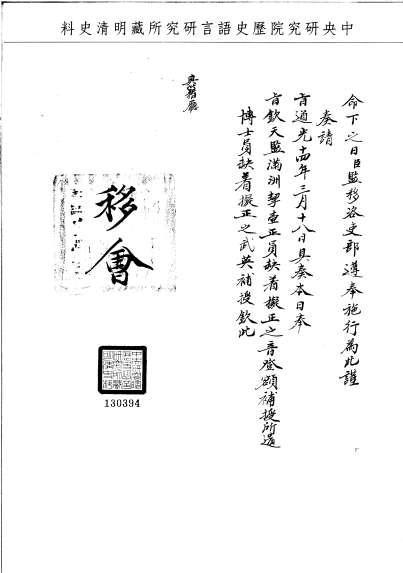 中央研究院歷史語言研究所藏明清史料
命下之日臣監移咨吏部遵奉施行為此謹
奏請
旨道光十四年三月十八日具奏本日奉
旨欽天監滿洲挈壺正員缺着擬正之音登額補授所遺
博士員缺着擬正之武英補授欽此
典籍廳
移會
130394